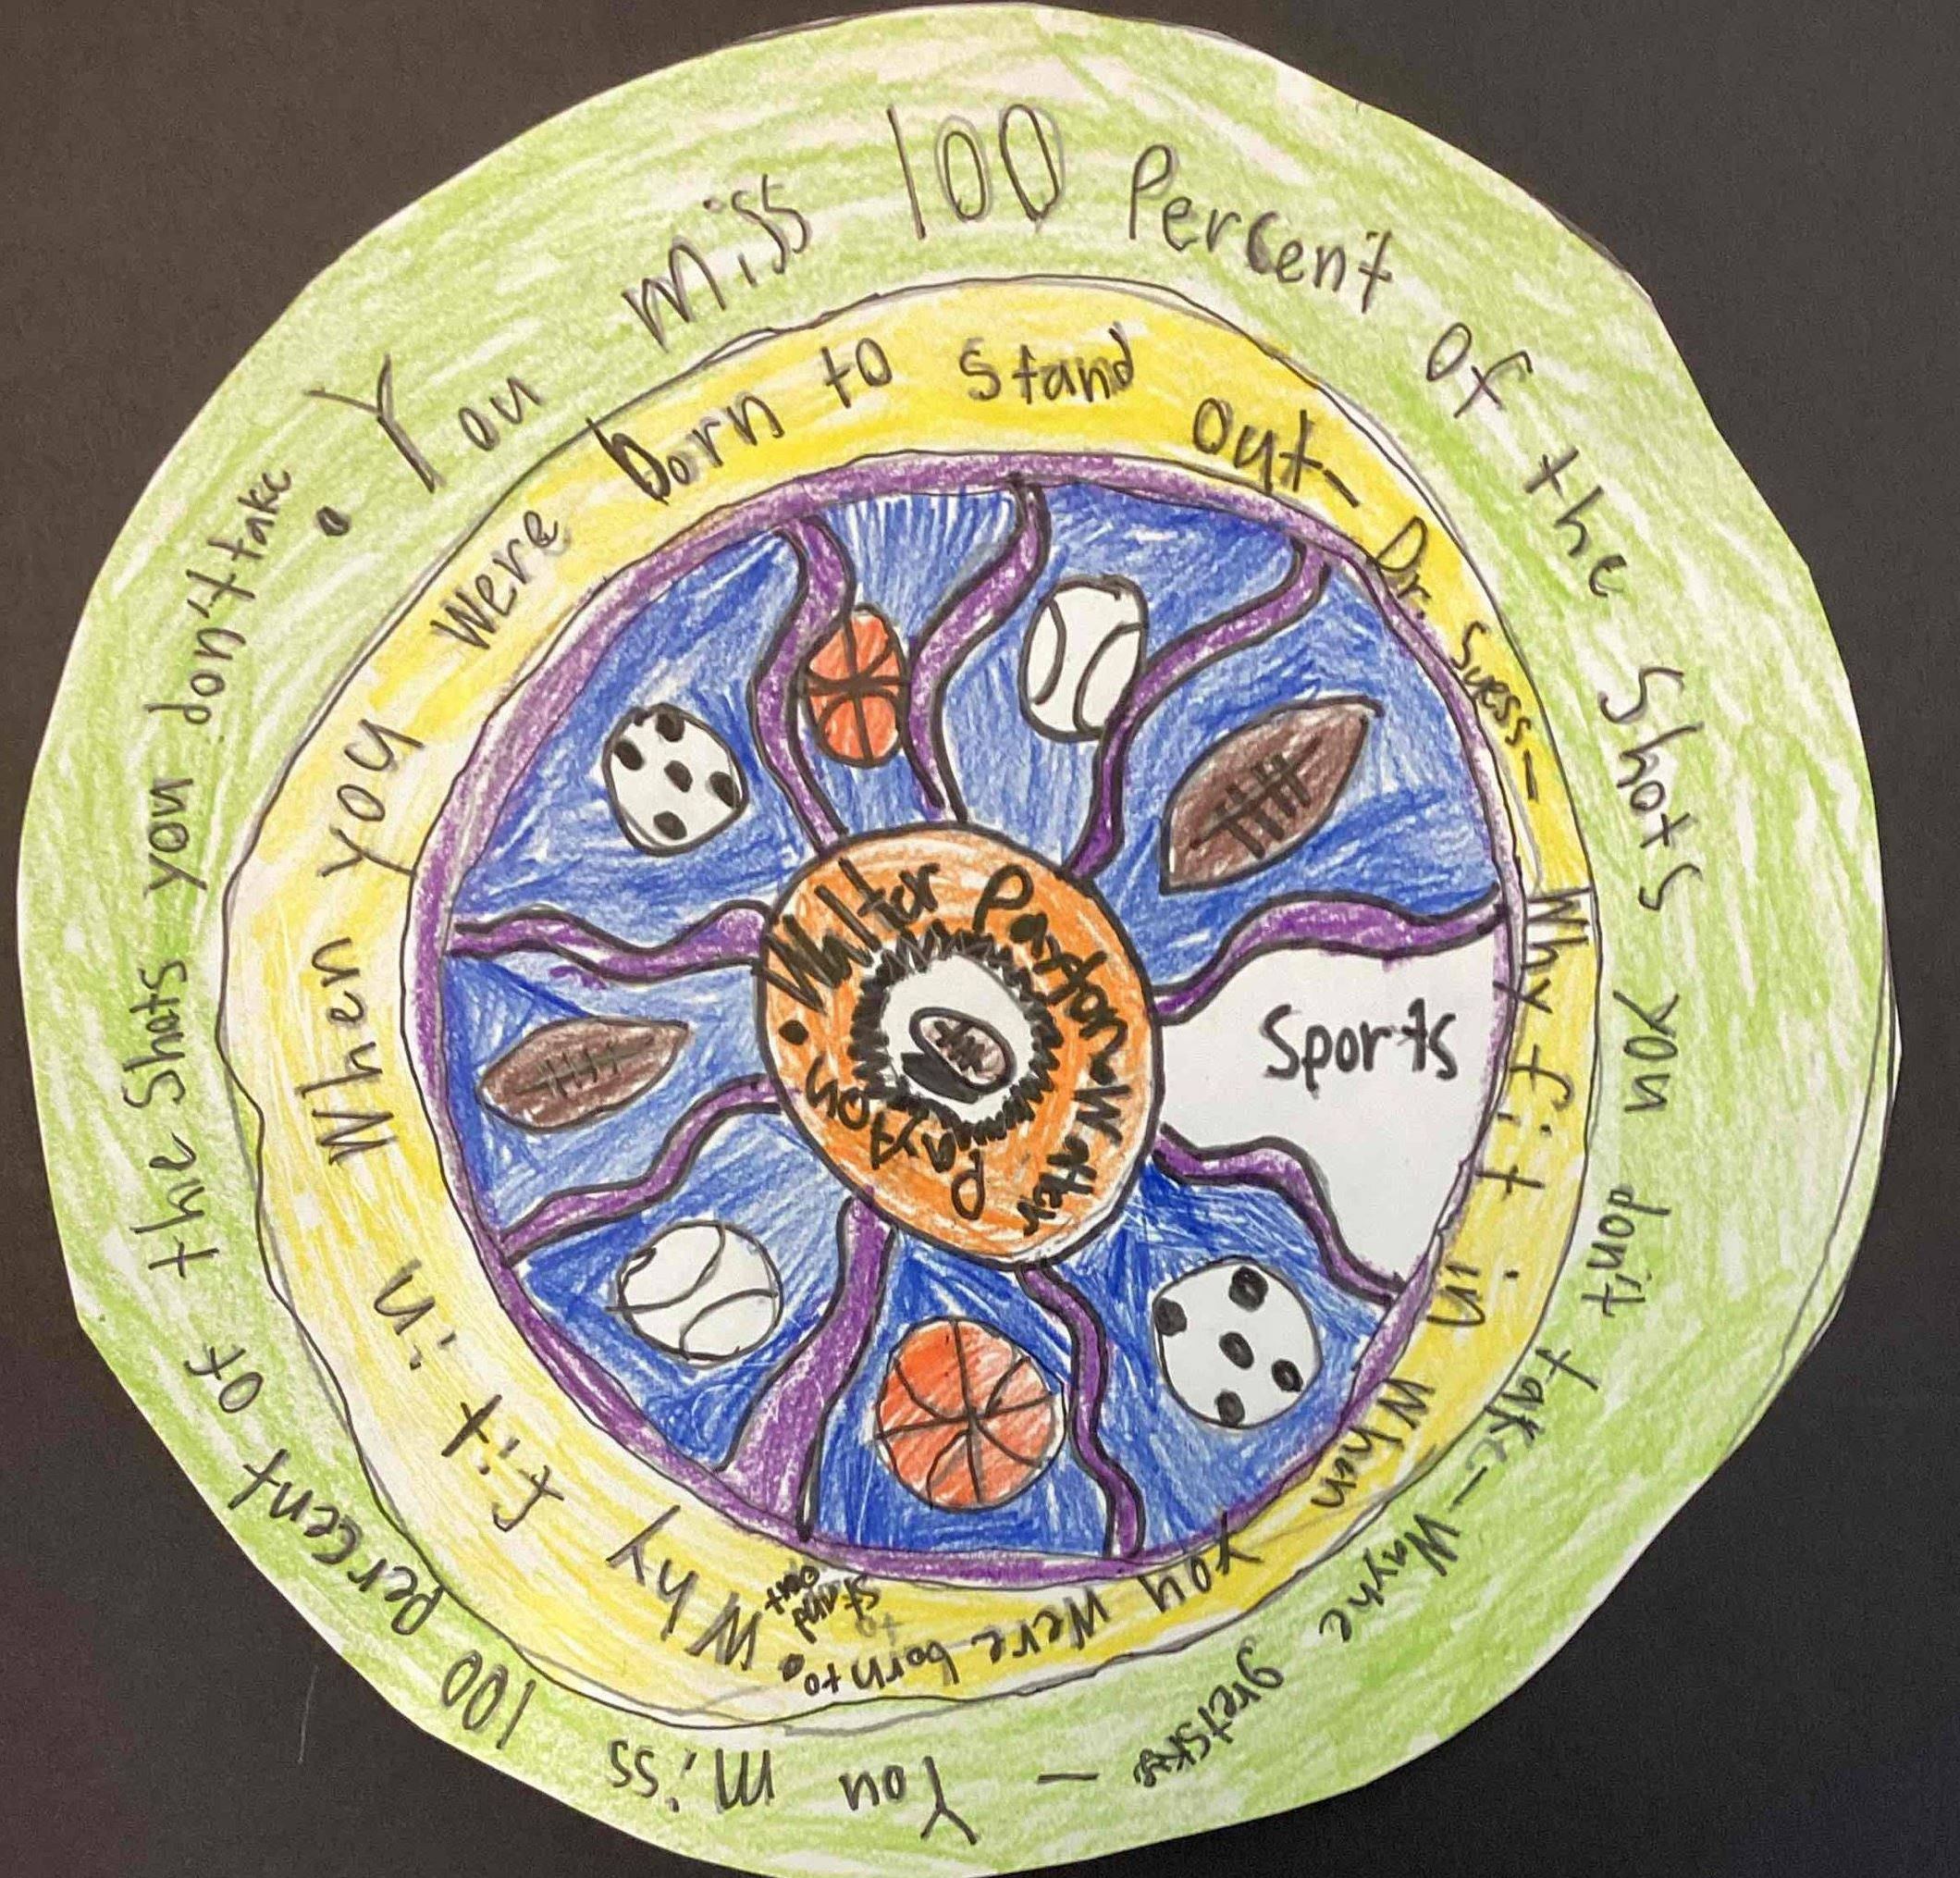 You miss 100 Percent of the Shots you don't take - Wayne gretsky - You miss 100 percent of the Shots you don't take.
Why fit in When you Were born to stand out • Why fit in When you Were born to Stand out - Dr. Suess -
Walter Payton ~ Walter Payton •
Sports